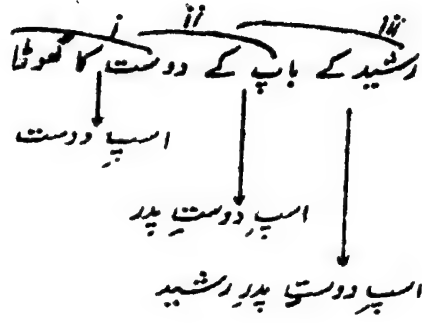 iii ii i
رشید کے باپ کے دوست کا گھوڑا
اسپِ دوست
اسپِ دوستِ پدر
اسپِ دوستِ پدرِ رشید